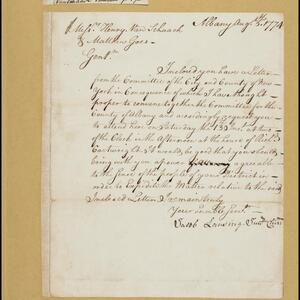 Albany Augt. 5th. 1774
Messrs. Henry Van Schaack
& Matthew Goes
Gentn.
Inclosed you have a Letter
from the Committee of the City and County of New
York in Consequence of which I have thought
proper to convene together the Committee for the
County of Albany and accordingly request you
to attend here on Saturday the 13 Inst. at two
of the Clock in the Afternoon at the house of Richd.
Cartwright it would, be good that you should
bring with you a power agreable
to the Sense of the people of your District in
order to Expedite the Matter relative to the said
Inclosed Letter I remain truly
Your humble Servt.
Jacob Lansing Junr.